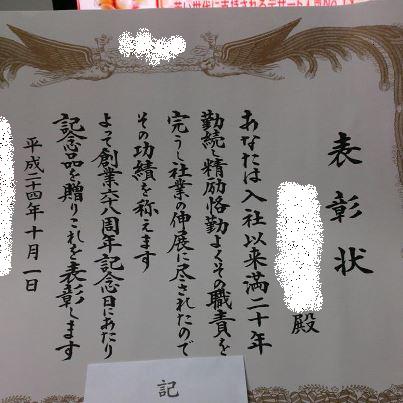 若い世代に支持されるデザート人気No.1
表彰状
殿
あなたは入社以来満二十年
勤続し精励恪勤よくその職責を
完うし社業の伸展に尽されたので
その功績を称えます
よって創業六八周年記念日にあたり
記念品を贈りこれを表彰します
平成二十四年十月一日
記